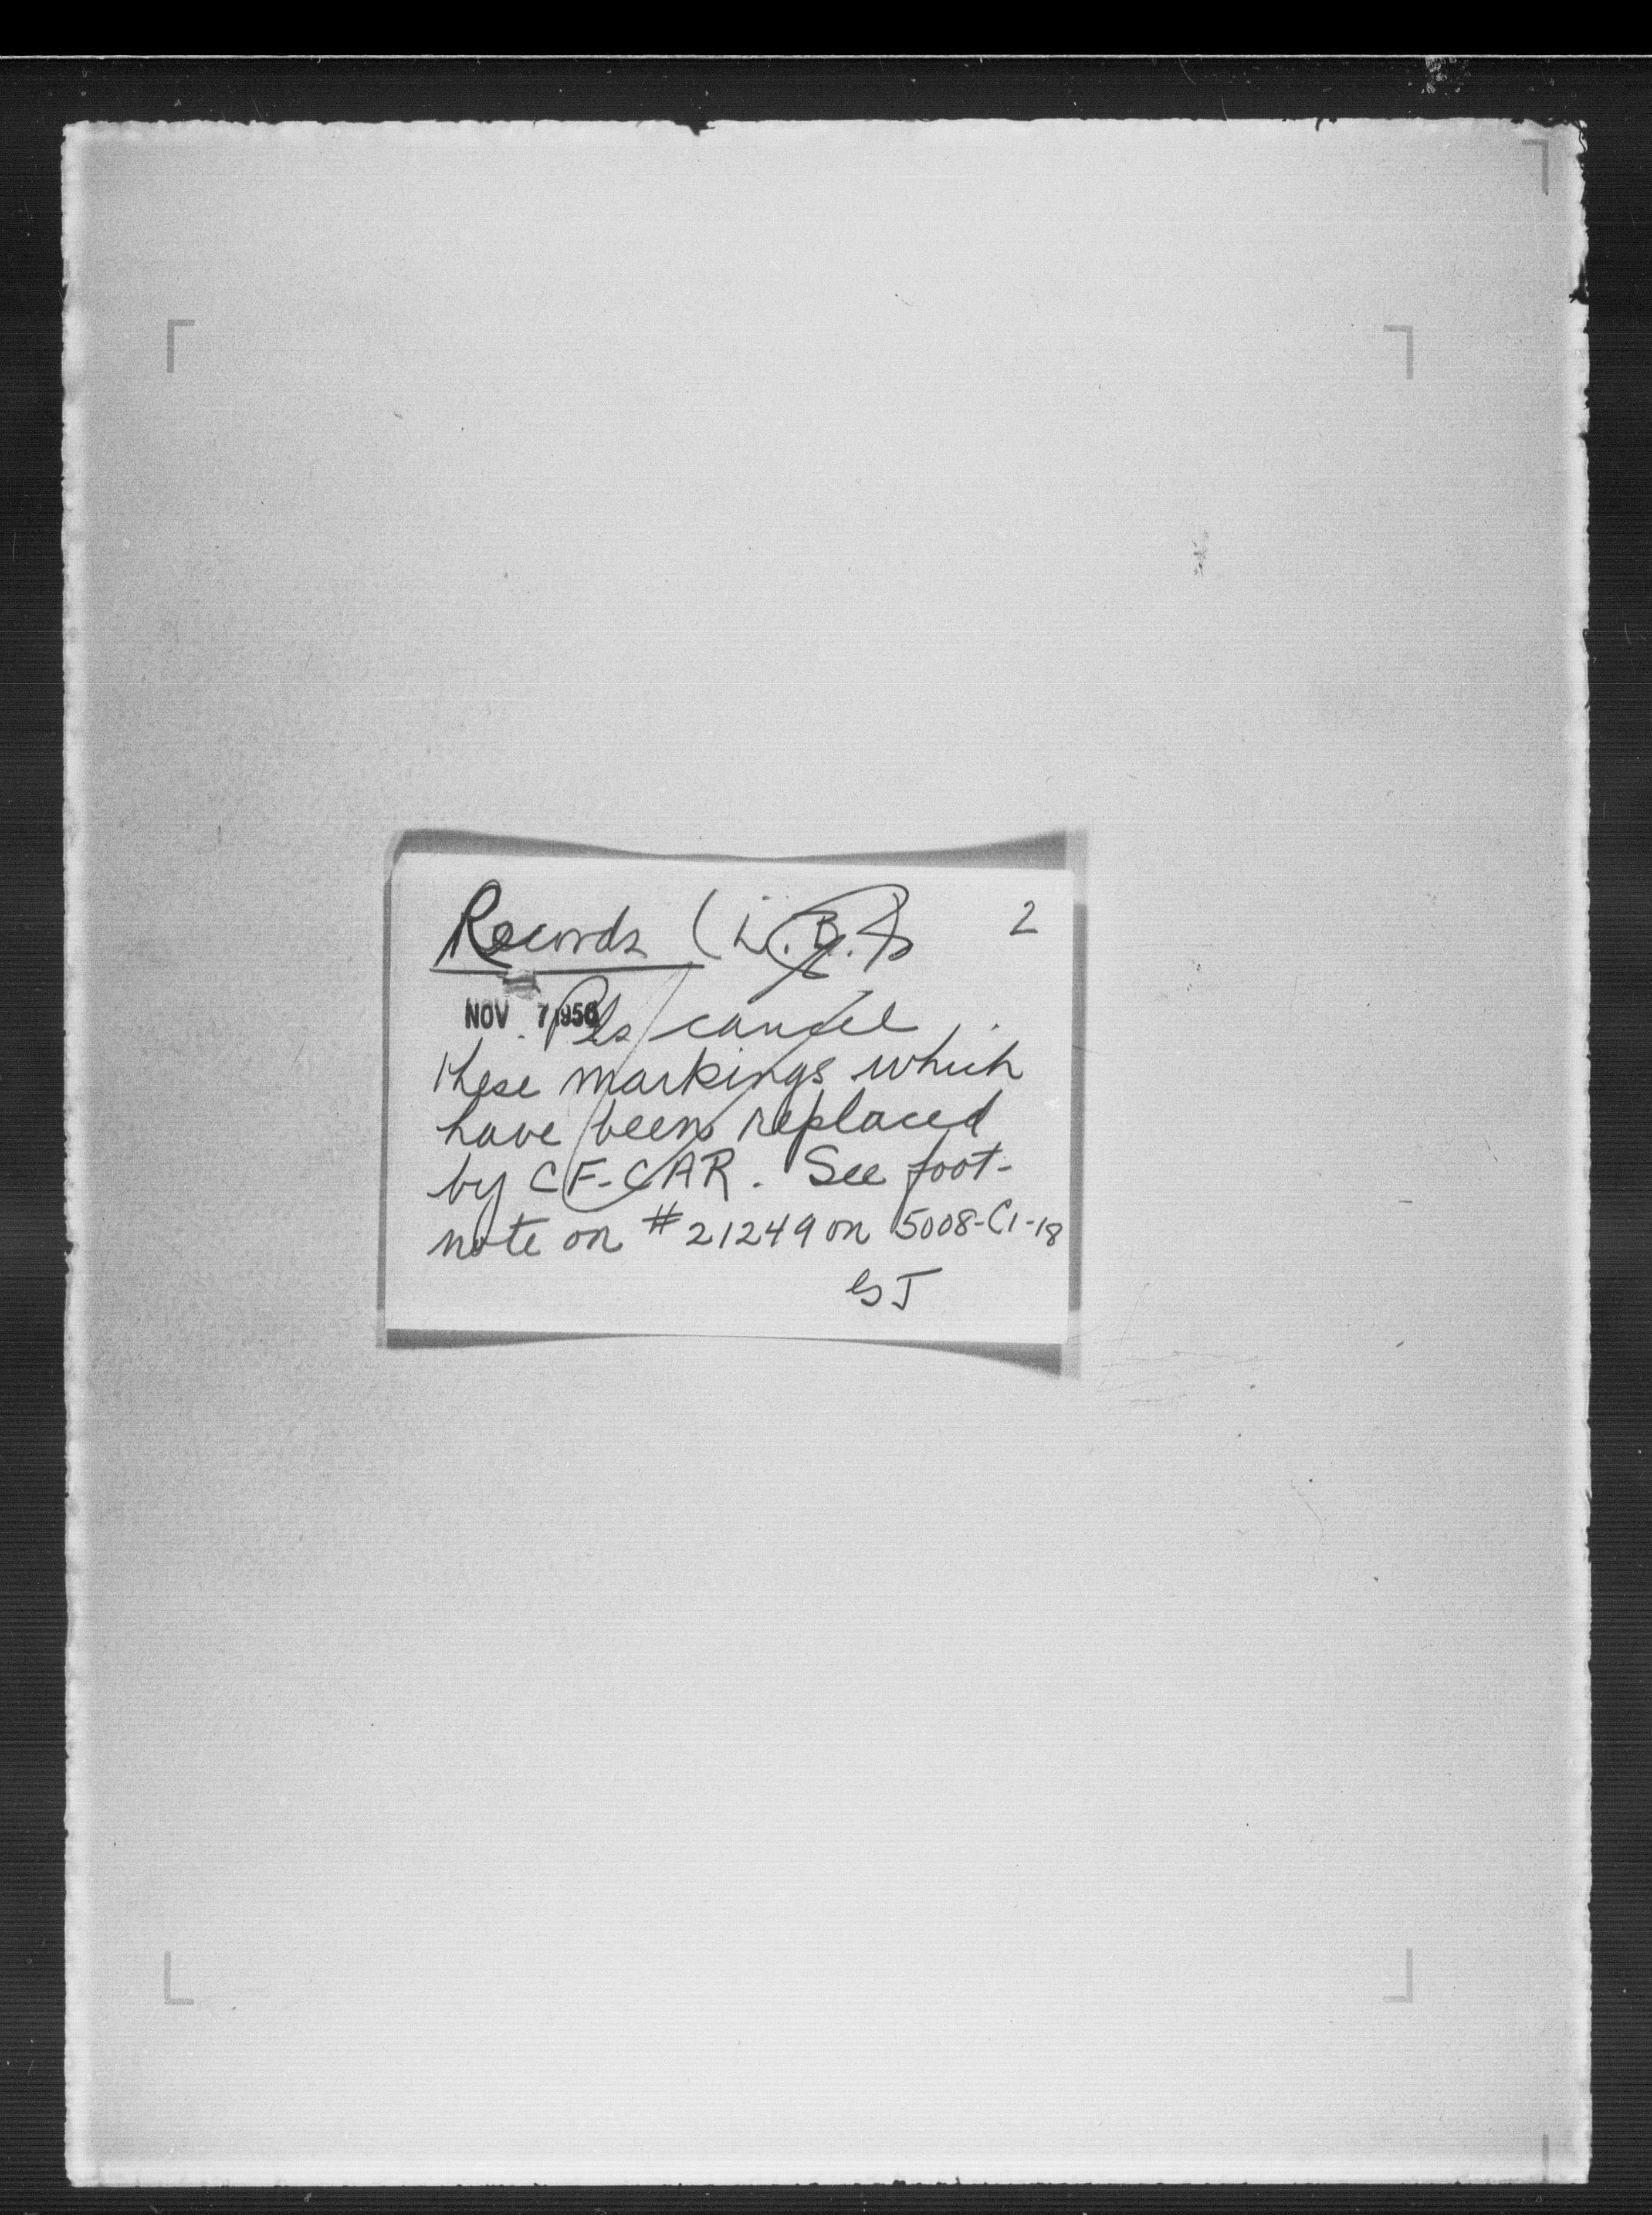 Records (L.B.) 2
NOV 7 1950
Pls cancel
these markings which
have been replaced
by CF-CAR. See foot-
note on #21249 on 5008-C1-18